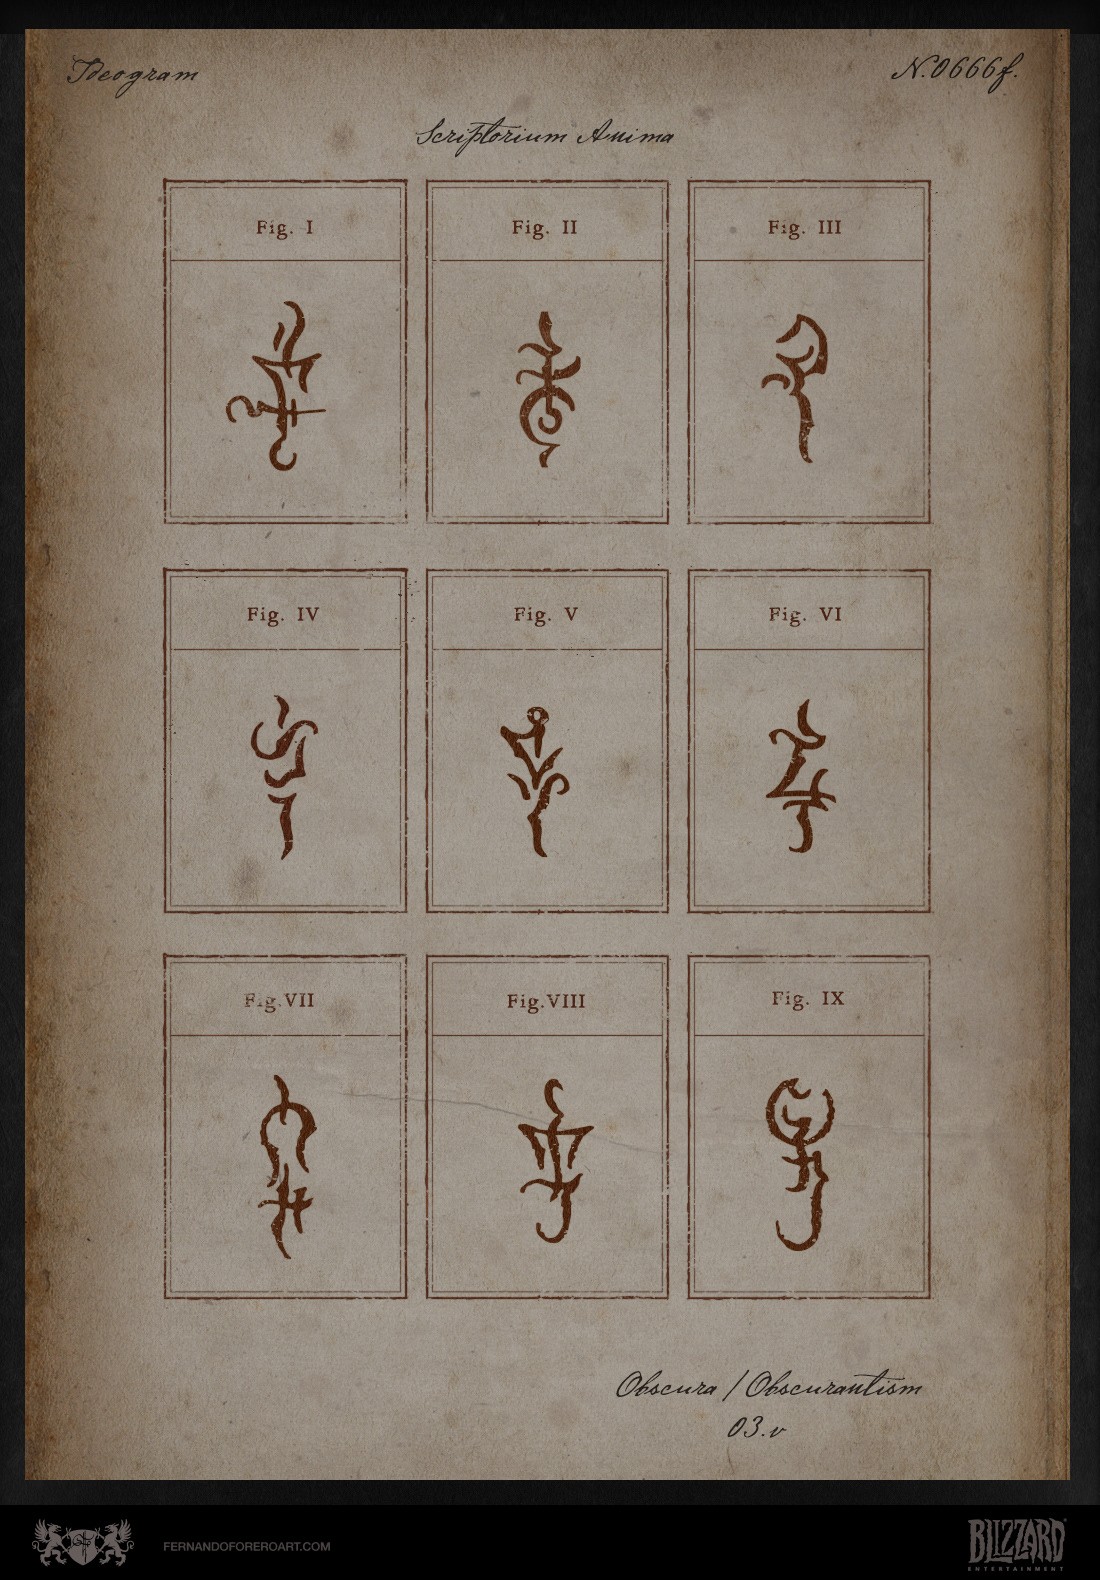 Ideogram
N.0666f.
Scriptorium Anima
Fig. I
Fig. II
Fig. III
Fig. IV
Fig. V
Fig. VI
Fig.VII
Fig.VIII
Fig. IX
Obscura / Obscurantism
03.v
FERNANDOFOREROART.COM
BLIZZARD
ENTERTAINMENT